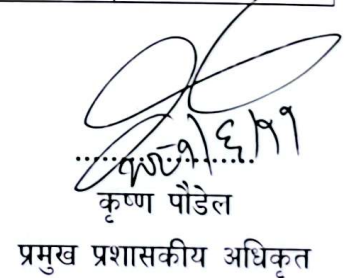 कृष्ण पौडेल
प्रमुख प्रशासकीय अधिकृत